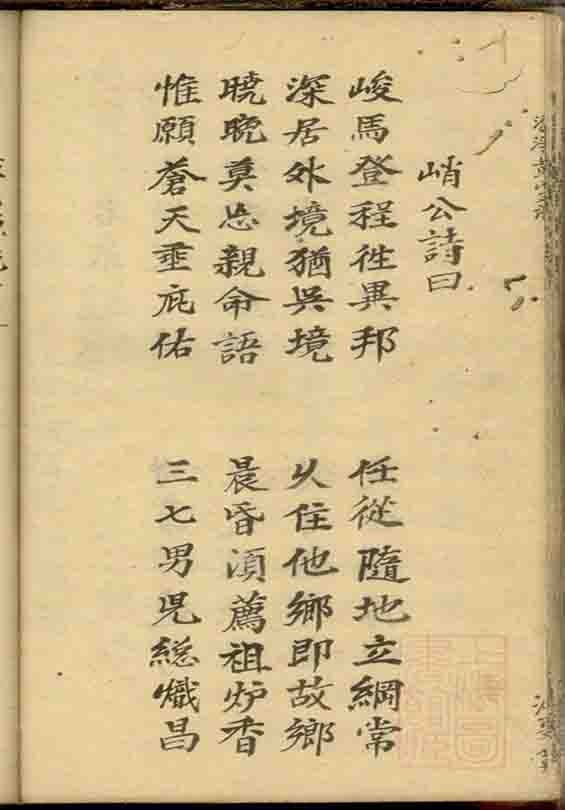 峭公詩曰
峻馬登程徃異邦 任從隨地立綱常
深居外境猶吳境 乆住他鄉即故鄉
曉晩莫忘親命語 晨昏湏薦祖炉香
惟願蒼天垂庇佑 三七男児緫熾昌